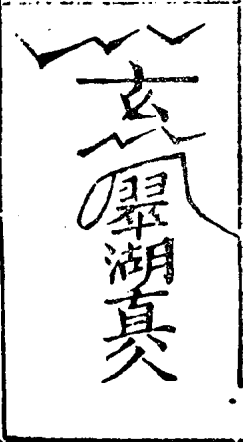 玄
翠湖真人